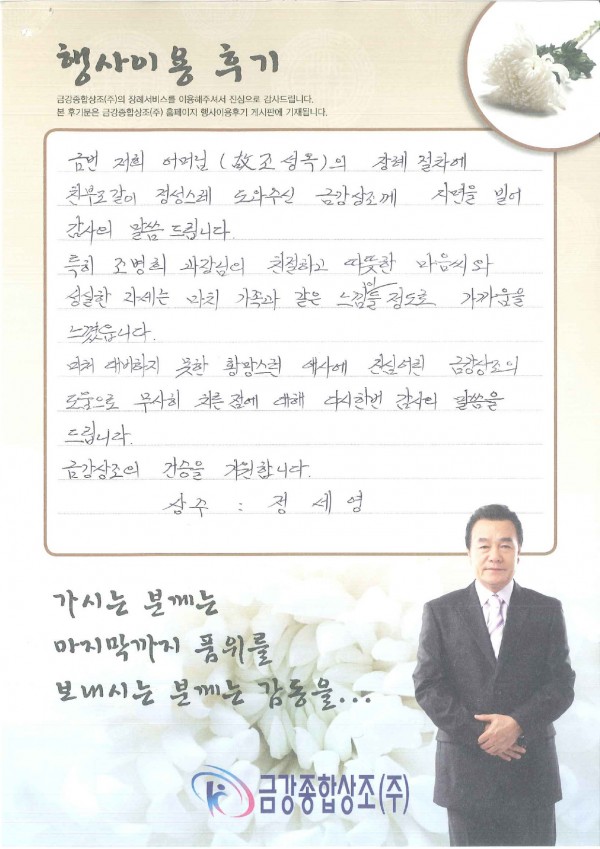 행사이용 후기
금강종합상조(주)의 장례서비스를 이용해주셔서 진심으로 감사드립니다.
본 후기문은 금강종합상조(주) 홈페이지 행사이용후기 게시판에 기재됩니다.
금번 저희 어머님 (故 조성옥)의 장례 절차에
친부모같이 정성스레 도와주신 금강상조께 지면을 빌어
감사의 말씀 드립니다.
특히 조병희 과장님의 친절하고 따뜻한 마음씨와
성실한 자세는 마치 가족과 같은 느낌이 들 정도로 가까움을
느꼈습니다.
미처 대비하지 못한 황망스런 애사에 진심어린 금강상조의
도움으로 무사히 치른 점에 대해 다시한번 감사의 말씀을
드립니다.
금강상조의 건승을 기원합니다.
상주 : 정세영
가시는 분께는
마지막까지 품위를
보내시는 분께는 감동을...
금강종합상조(주)